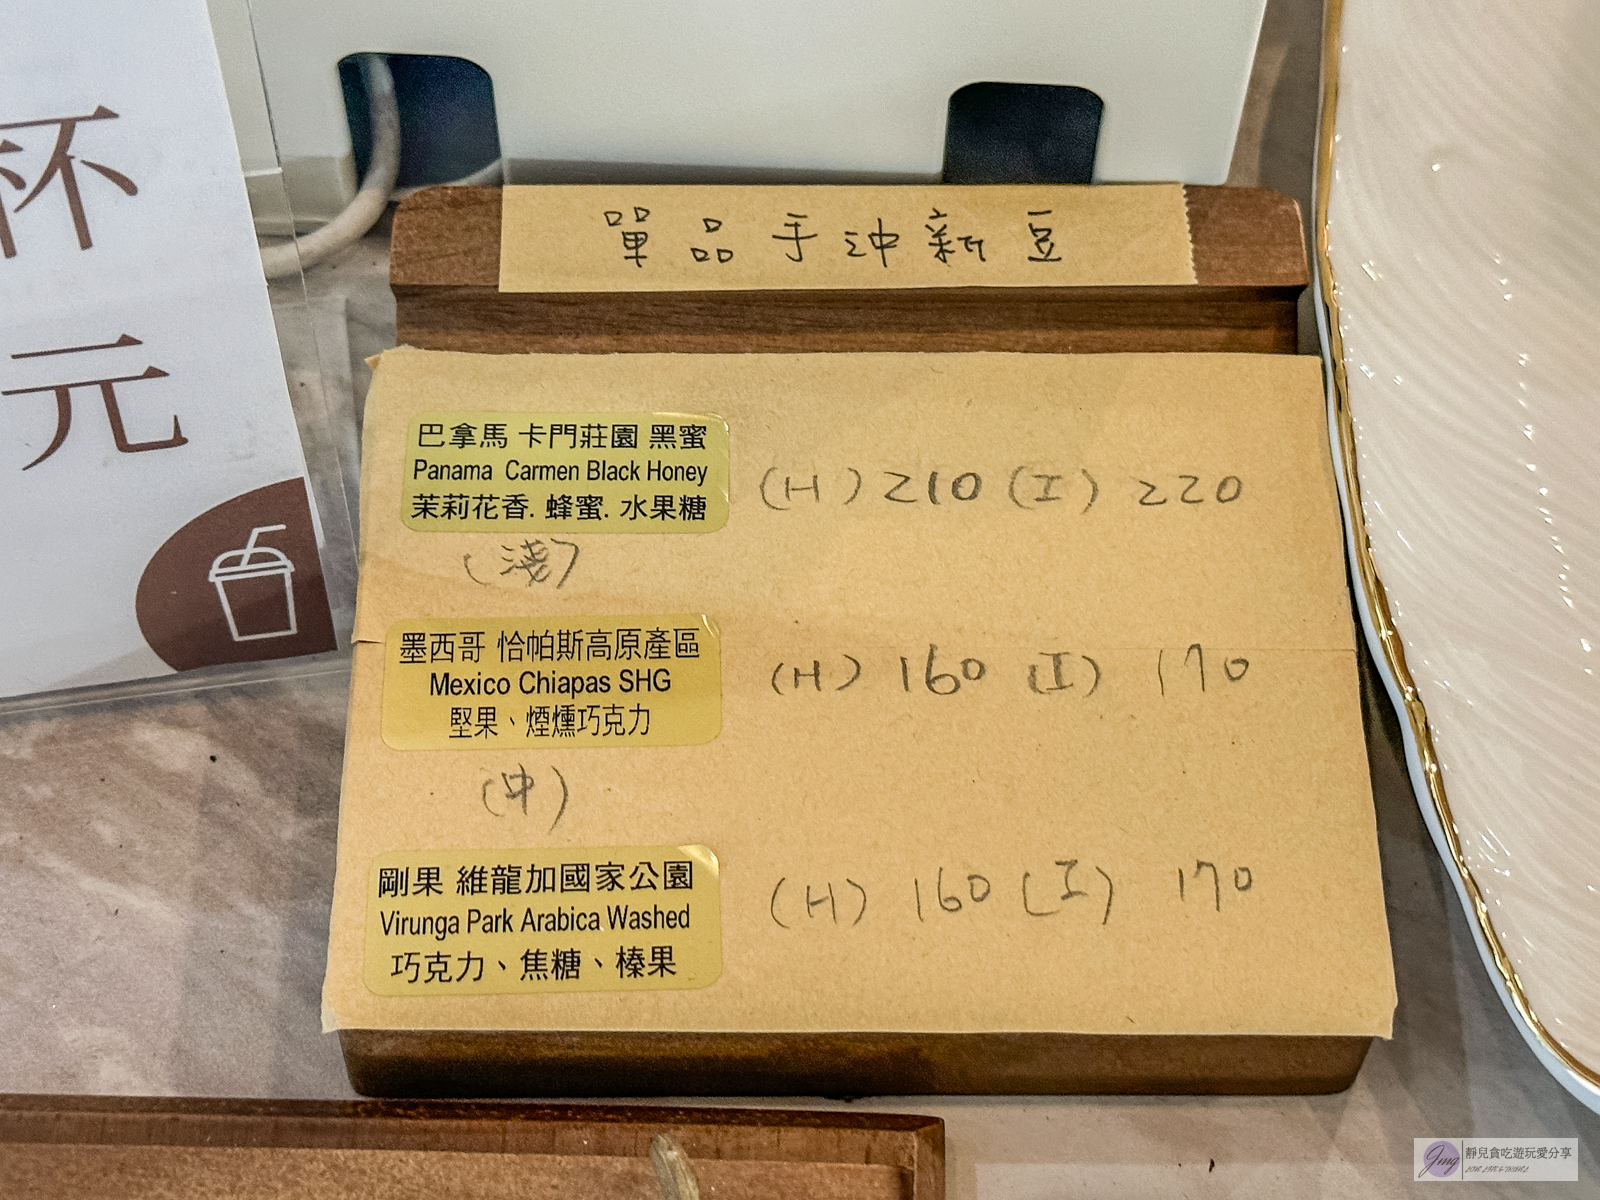 杯
元
單品手沖新豆
巴拿馬 卡門莊園 黑蜜
Panama Carmen Black Honey
茉莉花香. 蜂蜜. 水果糖
(H) 210 (I) 220
(淺)
墨西哥 恰帕斯高原產區
Mexico Chiapas SHG
堅果、煙燻巧克力
(H) 160 (I) 170
(中)
剛果 維龍加國家公園
Virunga Park Arabica Washed
巧克力、焦糖、榛果
(H) 160 (I) 170
Jing
靜兒貪吃遊玩愛分享